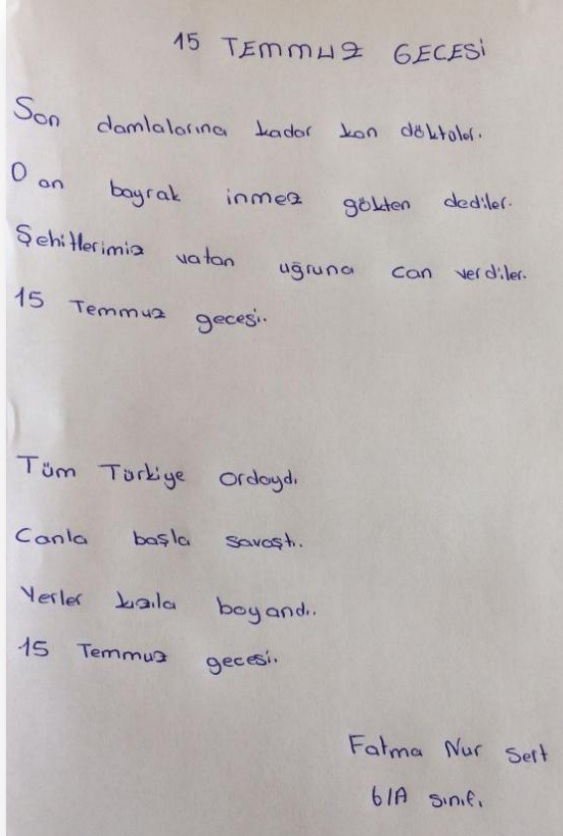 15 TEMMUZ GECESİ
Son damlalarına kadar kan döktüler.
O an bayrak inmez gökten dediler.
Şehitlerimiz vatan uğruna can verdiler.
15 Temmuz gecesi.
Tüm Türkiye ordaydı
Canla başla savaştı.
Yerler kızıla boyandı.
15 Temmuz gecesi.
Fatma Nur Sert
6/A sınıfı